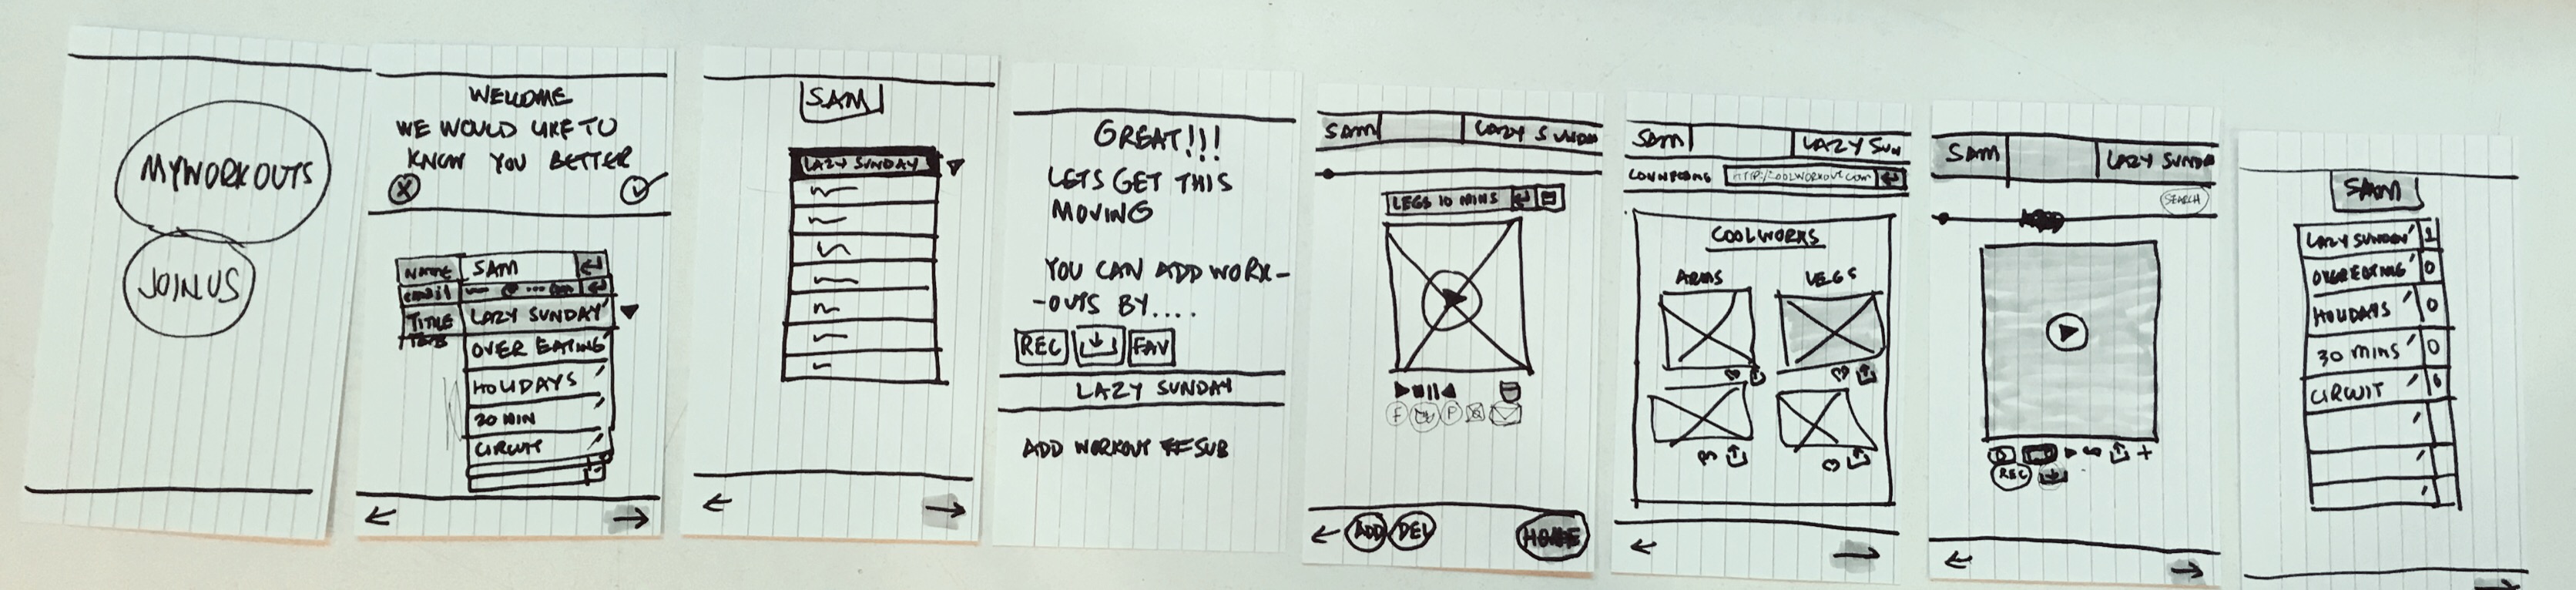 MYWORKOUTS
JOIN US
WELCOME
WE WOULD LIKE TO
KNOW YOU BETTER
NAME SAM
email @...com
TITLE LAZY SUNDAY
OVER EATING
HOLIDAYS
30 MIN
CIRCUIT
SAM
LAZY SUNDAY
GREAT!!!
LETS GET THIS
MOVING
YOU CAN ADD WORK-
-OUTS BY....
REC FAV
LAZY SUNDAY
ADD WORKOUT SUB
SAM LAZY SUNDA
LEGS 10 MINS
f P
ADD DEL HOME
SAM LAZY SUN
HTTP://COOLWORKOUT.COM
COOLWORKS
ARMS LEGS
SAM LAZY SUNDA
SEARCH
REC
SAM
LAZY SUNDAY 1
OVER EATING 0
HOLIDAYS 0
30 MINS 0
CIRCUIT 0